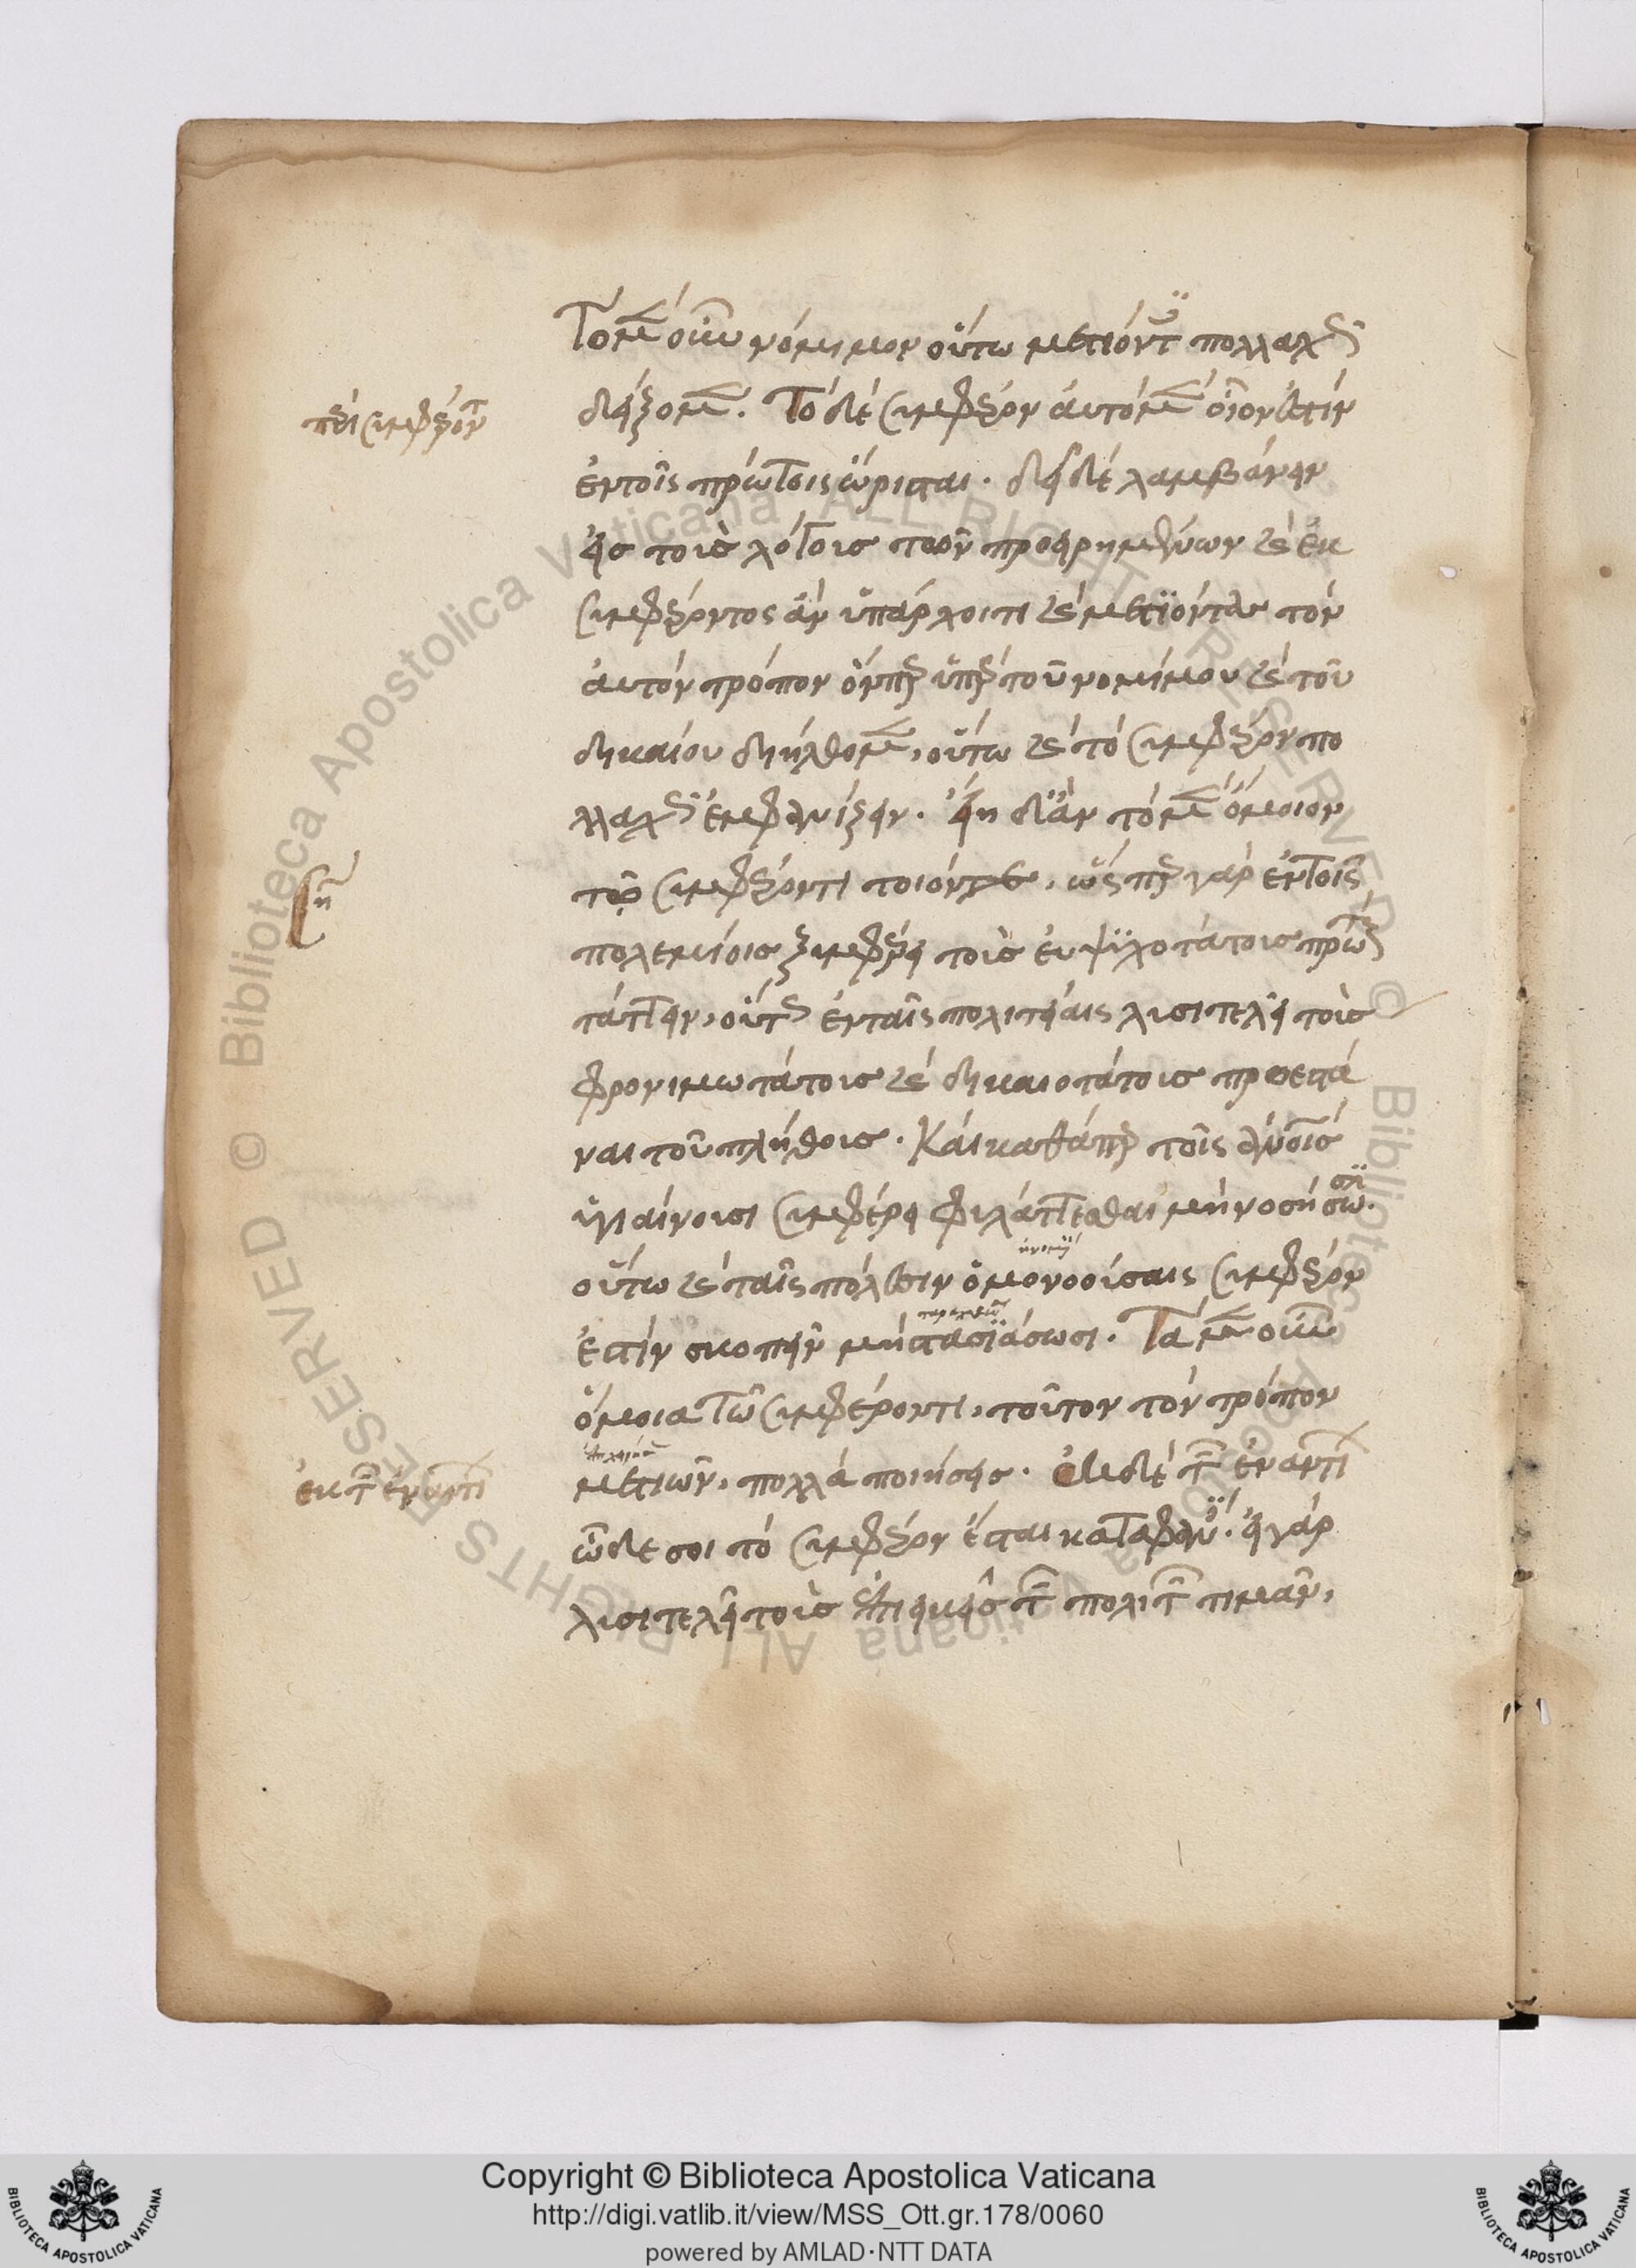 Τὸ μὲν οὖν νόμιμον οὕτω μετιόντας πολλαχῶς
περὶ συμφέροντος
δείξομεν. Τὸ δὲ συμφέρον αὐτὸ μὲν οἷόν ἐστιν
ἐν τοῖς πρώτοις ὥρισται. δεῖ δὲ λαμβάνειν
εἰς τοὺς λόγους τῶν προειρημένων καὶ ἐκ
συμφέροντος ἂν ὑπάρχοι τι καὶ μετιόντας τὸν
αὐτὸν τρόπον ὅνπερ ὑπὲρ τοῦ νομίμου καὶ τοῦ
δικαίου διήλθομεν, οὕτω καὶ τὸ συμφέρον πο
λλαχῶς ἐμφανίζειν. εἴη δ' ἂν τὸ μὲν ὅμοιον
τῷ συμφέροντι τοιόνδε, ὥσπερ γὰρ ἐν τοῖς
πολεμίοις ξυμφέρει τοὺς εὐψυχοτάτους πρώτους
τάττειν, οὕτως ἐν ταῖς πολιτείαις λυσιτελεῖ τοὺς
φρονιμωτάτους καὶ δικαιοτάτους προεστά
ναι τοῦ πλήθους. Καὶ καθάπερ τοῖς ἀνθρώποις
ὑγιαίνουσι συμφέρει φυλάττεσθαι μὴ νοσήσωσι.
οὕτω καὶ ταῖς πόλεσιν ὁμονοούσαις συμφέρον
ἐστὶν σκοπεῖν μὴ στασιάσωσι. Τὰ μὲν οὖν
ὅμοια τῷ συμφέροντι, τοῦτον τὸν τρόπον
μετιὼν, πολλὰ ποιήσεις. ἐκ δὲ τῶν ἐναντίων
ἐκ τῶν ἐναντίων
ὧδέ σοι τὸ συμφέρον ἔσται καταφανές. εἰ γὰρ
λυσιτελεῖ τοὺς ἐπιεικεῖς τῶν πολιτῶν τιμᾶν,
Copyright © Biblioteca Apostolica Vaticana
http://digi.vatlib.it/view/MSS_Ott.gr.178/0060
powered by AMLAD·NTT DATA